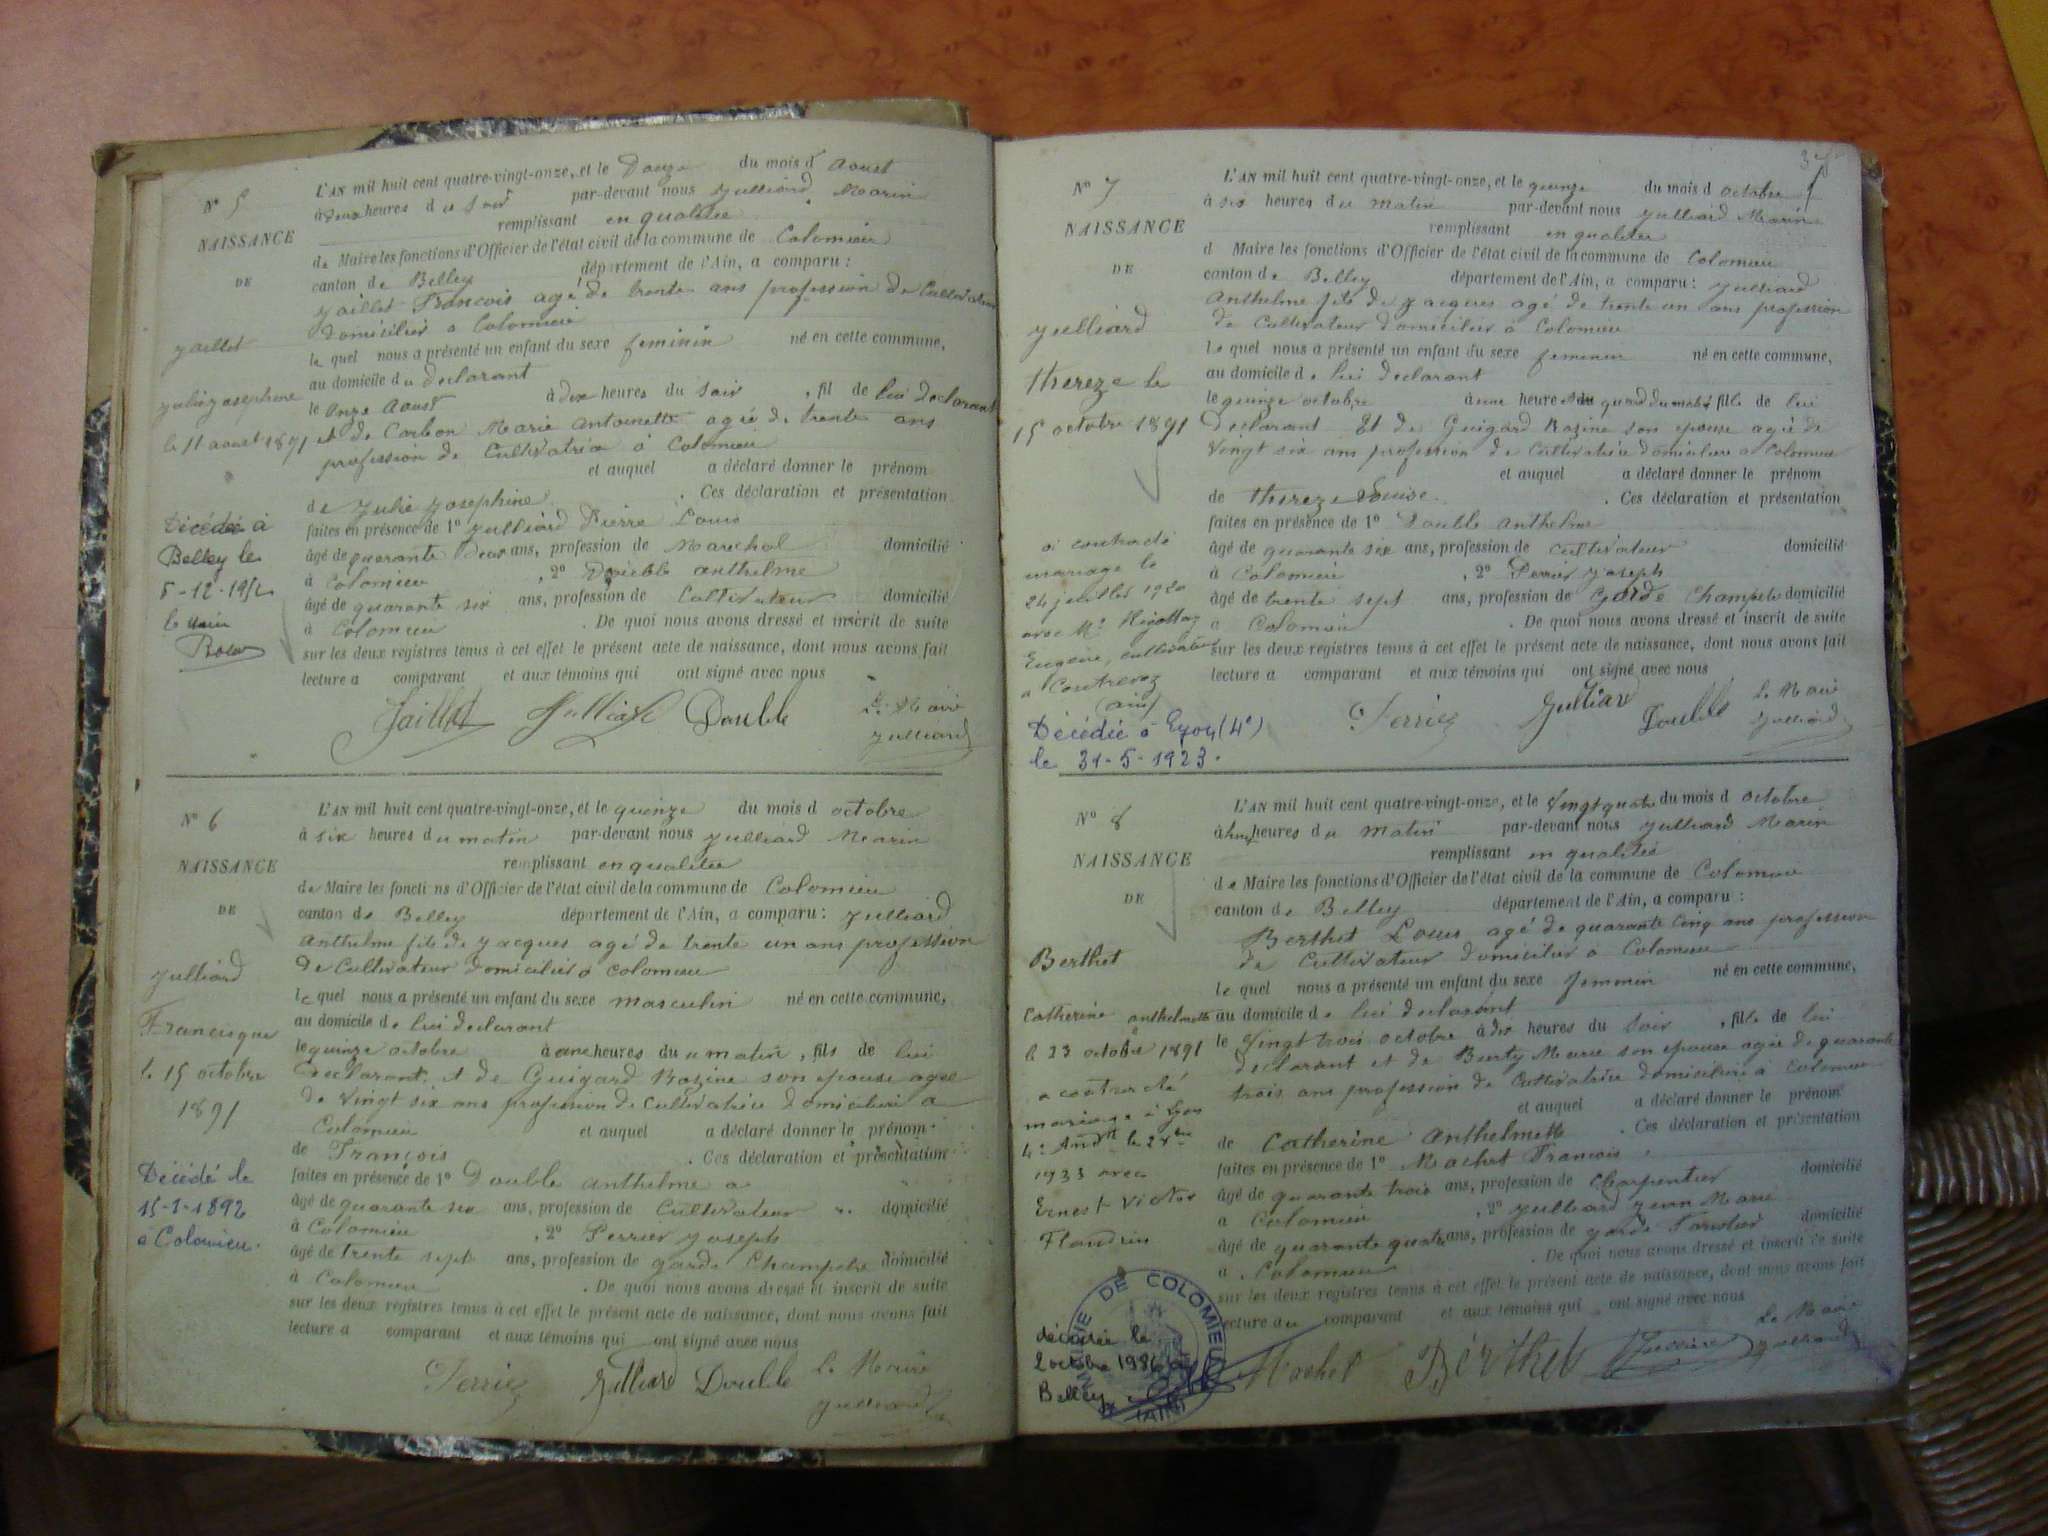 N° 5
NAISSANCE
DE
Jaillet
Julie Josephine
le 11 aoust 1891
Décédée à
Belley le
le Maire
L'AN mil huit cent quatre-vingt-onze, et le Douze du mois d' Aoust
à deux heures du soir par-devant nous Julliard Marin
remplissant en qualitée
de Maire les fonctions d'Officier de l'état civil de la commune de Colomieu
canton de Belley département de l'Ain, a comparu :
Jaillet François agé de trente ans profession de Cultivateur
domicilier a Colomieu
le quel nous a présenté un enfant du sexe feminin né en cette commune,
au domicile du declarant
le onze Aoust à dix heures du soir , fil de lui declarant
et de Carbon Marie Antoinette agée de trente ans
profession de Cultivatrice à Colomieu
et auquel a déclaré donner le prénom
de Julie Josephine . Ces déclaration et présentation
faites en présence de 1° Julliard Pierre Louis
âgé de quarante deux ans, profession de Marechal domicilié
à Colomieu , 2° Double anthelme
âgé de quarante six ans, profession de Cultivateur domicilié
à Colomieu . De quoi nous avons dressé et inscrit de suite
sur les deux registres tenus à cet effet le présent acte de naissance, dont nous avons fait
lecture a comparant et aux témoins qui ont signé avec nous
Jaillet Julliard Double Le Maire
Julliard
N° 6
NAISSANCE
DE
Julliard
Francisque
le 15 octobre
1891
Décédé le
15-1-1892
a Colomieu.
L'AN mil huit cent quatre-vingt-onze, et le quinze du mois d octobre
à six heures du matin par-devant nous Julliard Marin
remplissant en qualitée
de Maire les foncti ns d'Officier de l'état civil de la commune de Colomieu
canton de Belley département de l'Ain, a comparu : Julliard
Anthelme fils de Jacques agé de trente un ans profession
de Cultivateur domicilier a colomieu
le quel nous a présenté un enfant du sexe masculin né en cette commune,
au domicile de lui declarant
le quinze octobre à une heures du matin , fils de lui
declarant. et de Guigard Rozine son epouse agée
de vingt six ans profession de Cultivatrice domiciliée a
Colomieu et auquel a déclaré donner le prénom
de François . Ces déclaration et présentation
faites en présence de 1° Double anthelme
âgé de quarante six ans, profession de Cultivateur domicilié
à Colomieu , 2° Perrier Joseph
âgé de trente sept ans, profession de garde Champetre domicilié
à Colomieu . De quoi nous avons dressé et inscrit de suite
sur les deux registres tenus à cet effet le présent acte de naissance, dont nous avons fait
lecture a comparant et aux témoins qui ont signé avec nous
Perrier Julliard Double Le Maire
Julliard
N° 7
NAISSANCE
DE
Julliard
thereze le
15 octobre 1891
a contracté
mariage le
24 juillet 1920
avec Mr Rigollaz
Eugène, cultivateur
a Contrevoz
(ain)
Décédée à Lyon (4e)
le 31-5-1923.
L'AN mil huit cent quatre-vingt-onze, et le quinze du mois d octobre
à six heures du matin par-devant nous Julliard Marin
remplissant en qualitée
d Maire les fonctions d'Officier de l'état civil de la commune de Colomieu
canton de Belley département de l'Ain, a comparu : Julliard
Anthelme fils de Jacques agé de trente un ans profession
de Cultivateur domicilier à Colomieu
le quel nous a présenté un enfant du sexe feminin né en cette commune,
au domicile de lui declarant
le quinze octobre à une heure et quard du matin , fille de lui
declarant Et de Guigard Rozine son epouse agée de
Vingt six ans profession de Cultivatrice domiciliée a Colomieu
et auquel a déclaré donner le prénom
de thereze Louise . Ces déclaration et présentation
faites en présence de 1° Double anthelme
âgé de quarante six ans, profession de cultivateur domicilié
à Colomieu , 2° Perrier Joseph
âgé de trente sept ans, profession de Garde Champetre domicilié
a Colomieu . De quoi nous avons dressé et inscrit de suite
sur les deux registres tenus à cet effet le présent acte de naissance, dont nous avons fait
lecture a comparant et aux témoins qui ont signé avec nous
Perrier Julliard Double Le Maire
Julliard
N° 8
NAISSANCE
DE
Berthet
Catherine anthelmette
le 23 octobre 1891
a contracté
mariage à Lyon
1933 avec
Ernest Victor
Flandrin
décédée le
2 octobre 1986 a
Belley
MAIRIE DE COLOMIEU
(AIN)
L'AN mil huit cent quatre-vingt-onze, et le Vingt quatre du mois d octobre
à huit heures du matin par-devant nous Julliard Marin
remplissant en qualitée
de Maire les fonctions d'Officier de l'état civil de la commune de Colomieu
canton de Belley département de l'Ain, a comparu :
Berthet Louis agé de quarante cinq ans profession
de Cultivateur domicilier à Colomieu
le quel nous a présenté un enfant du sexe feminin né en cette commune,
au domicile de lui declarant
le Vingt trois octobre à dix heures du soir , fille de lui
declarant et de Burty Marie son epouse agée de quarante
trois ans profession de Cultivatrice domiciliée à Colomieu
et auquel a déclaré donner le prénom
de Catherine Anthelmette . Ces déclaration et présentation
faites en présence de 1° Machet François
âgé de quarante trois ans, profession de Charpentier domicilié
a Colomieu , 2° Julliard Jean Marie
âgé de quarante quatre ans, profession de garde Forestier domicilié
a Colomieu . De quoi nous avons dressé et inscrit de suite
sur les deux registres tenus à cet effet le présent acte de naissance, dont nous avons fait
lecture au comparant et aux témoins qui ont signé avec nous
Machet Berthet Le Maire
Julliard